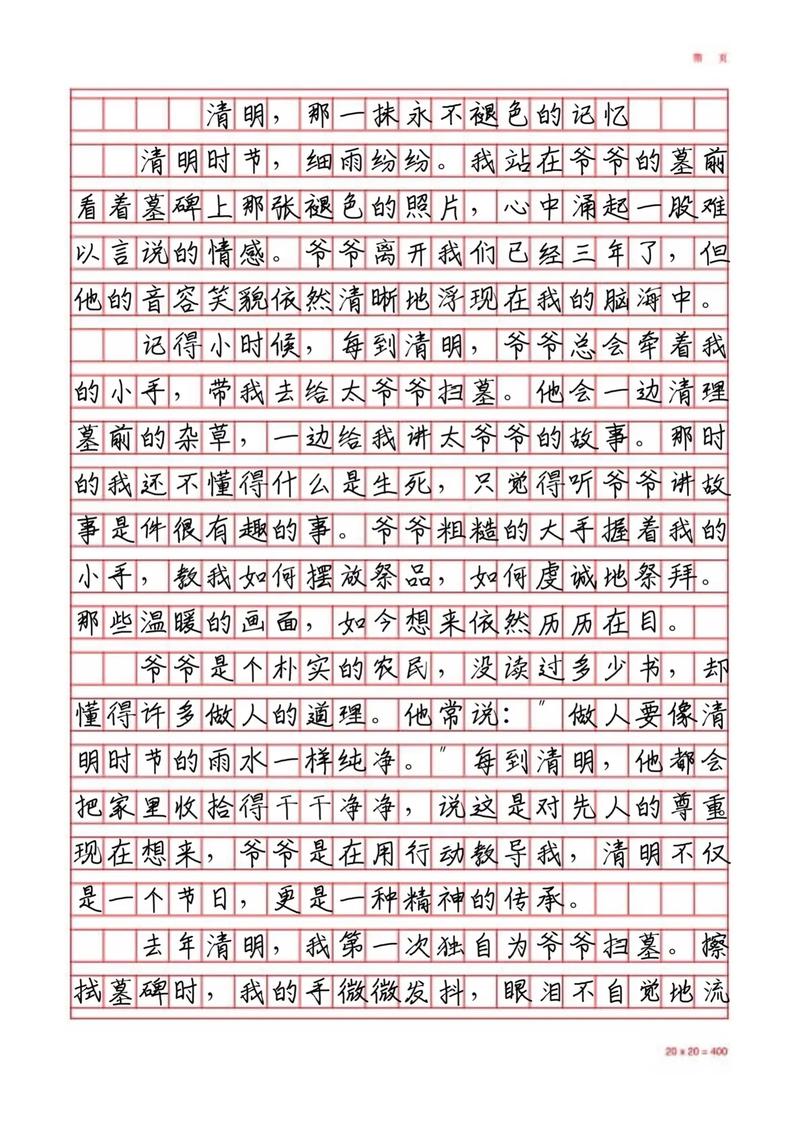 第 页
清明，那一抹永不褪色的记忆
清明时节，细雨纷纷。我站在爷爷的墓前
看着墓碑上那张褪色的照片，心中涌起一股难
以言说的情感。爷爷离开我们已经三年了，但
他的音容笑貌依然清晰地浮现在我的脑海中。
记得小时候，每到清明，爷爷总会牵着我
的小手，带我去给太爷爷扫墓。他会一边清理
墓前的杂草，一边给我讲太爷爷的故事。那时
的我还不懂得什么是生死，只觉得听爷爷讲故
事是件很有趣的事。爷爷粗糙的大手握着我的
小手，教我如何摆放祭品，如何虔诚地祭拜。
那些温暖的画面，如今想来依然历历在目。
爷爷是个朴实的农民，没读过多少书，却
懂得许多做人的道理。他常说："做人要像清
明时节的雨水一样纯净。"每到清明，他都会
把家里收拾得干干净净，说这是对先人的尊重
现在想来，爷爷是在用行动教导我，清明不仅
是一个节日，更是一种精神的传承。
去年清明，我第一次独自为爷爷扫墓。擦
拭墓碑时，我的手微微发抖，眼泪不自觉地流
20 x 20 = 400